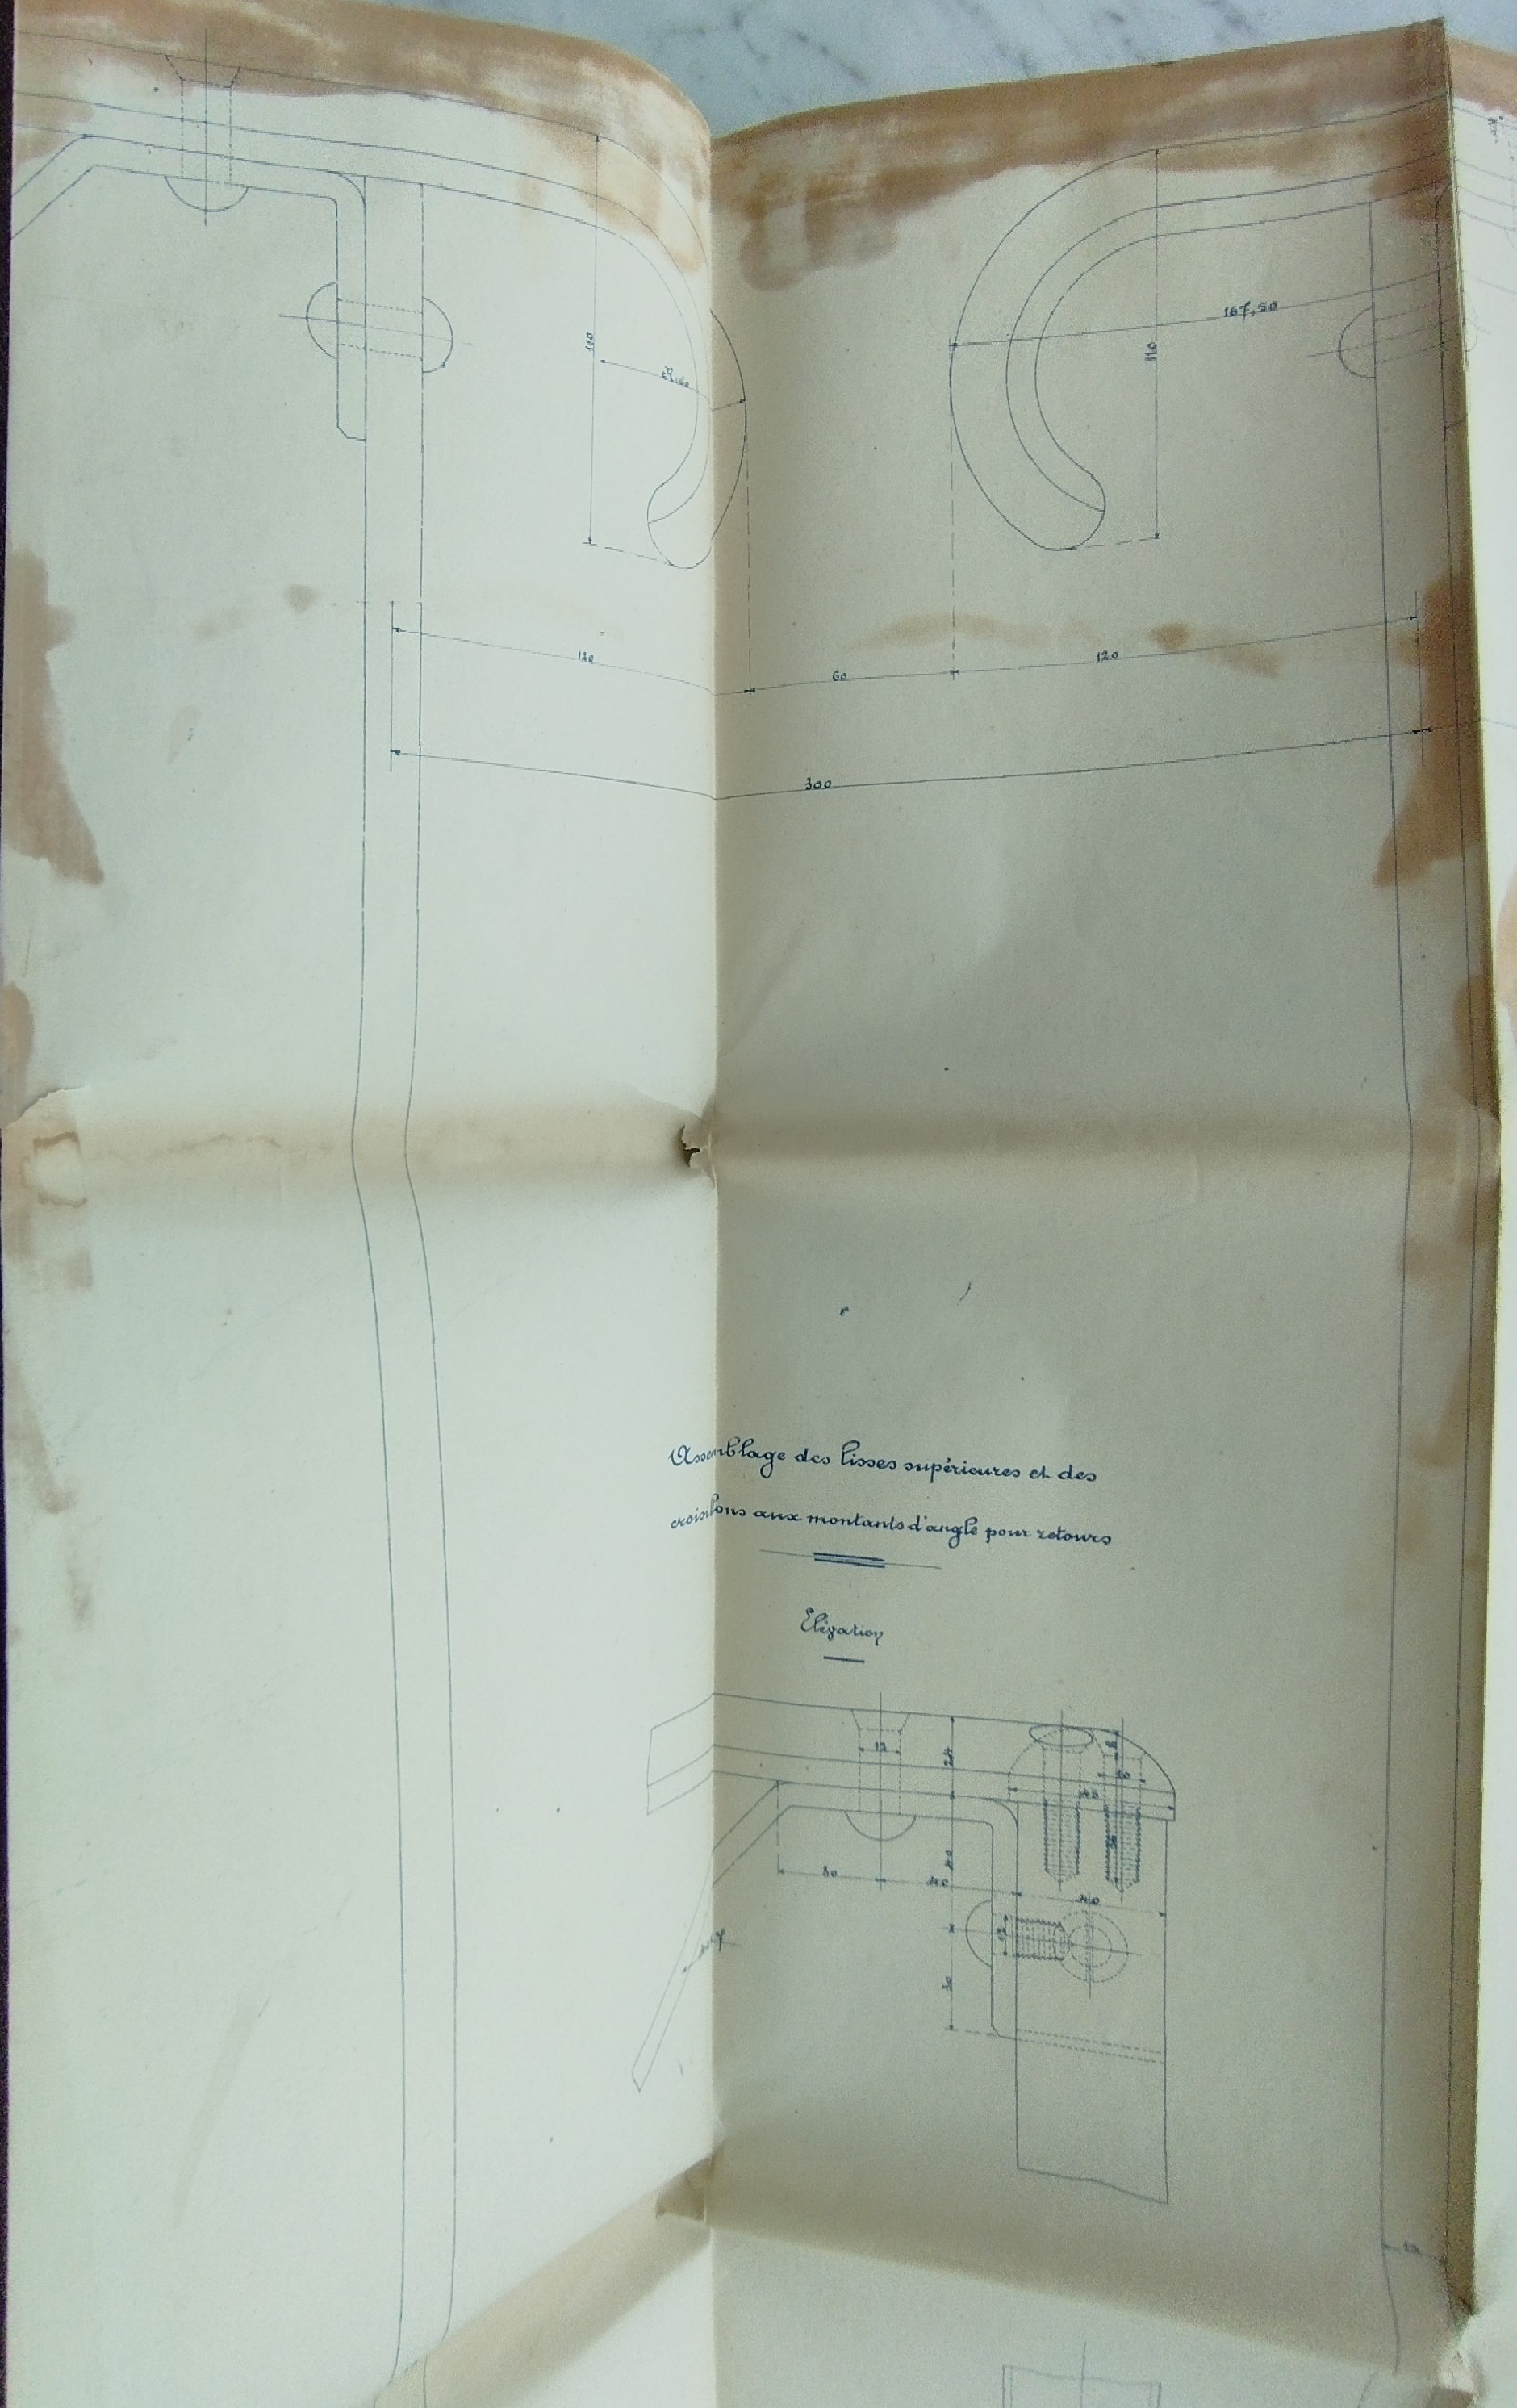 110
167,50
110
120
60
120
300
Assemblage des lisses supérieures et des
croisillons aux montants d'angle pour retours
Elévation
12
24
8
20
48
40
80
40
40
30